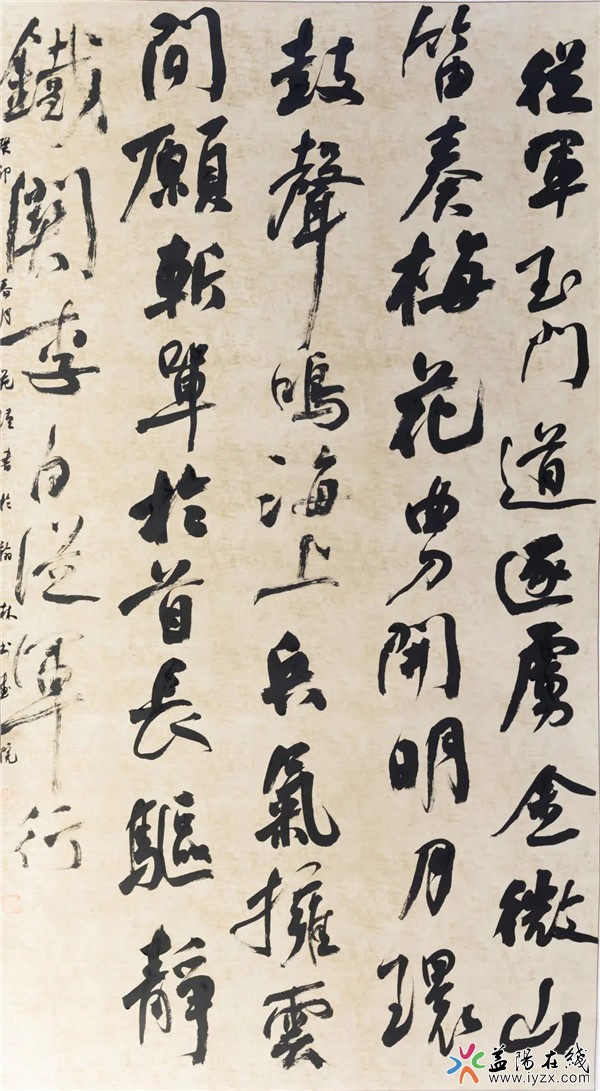 從軍玉門道逐虜金微山
笛奏梅花曲刀開明月環
鼓聲鳴海上兵氣擁雲
間願斬單於首長驅靜
鐵關李白從軍行
癸卯春月書於翰林书画院
益陽在线
www.iyzx.com